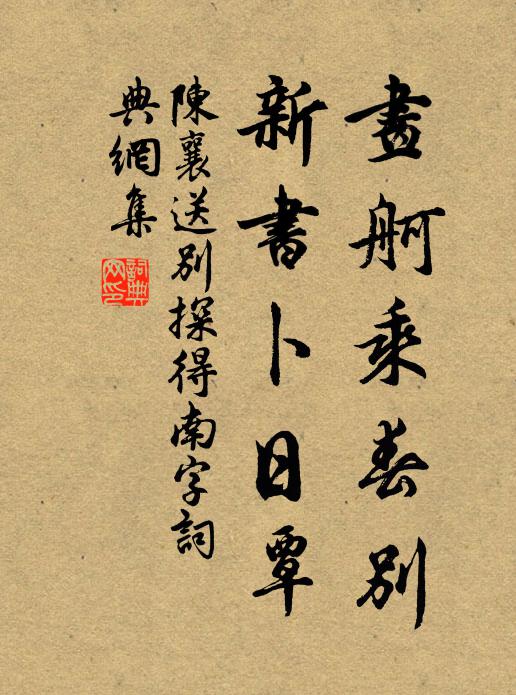 畫舸乘春別
新書卜日覃
陳襄送別探得南字詞
典網集
詞典
网印